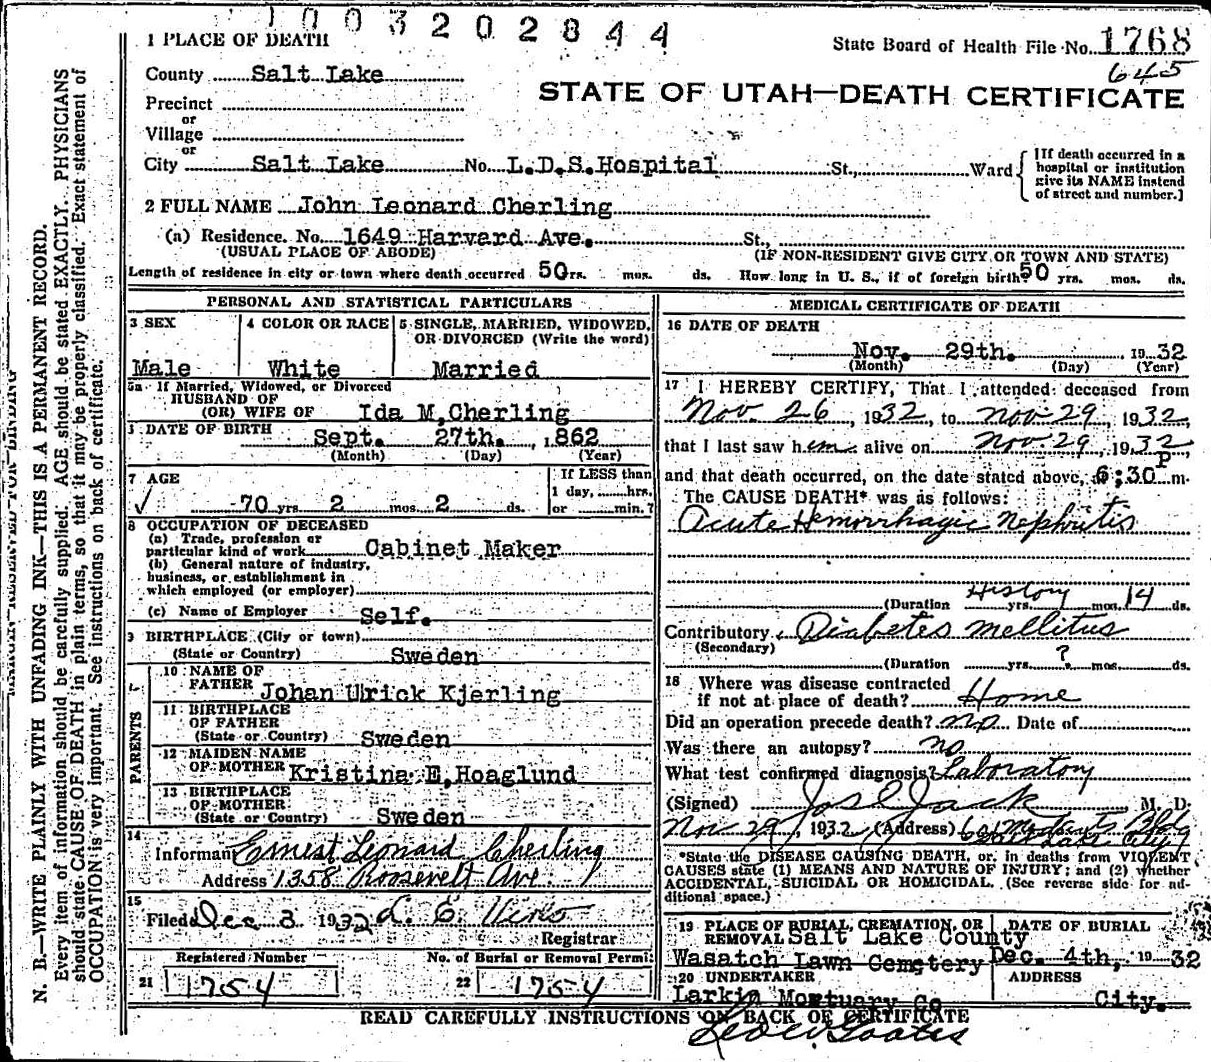 1003202844
1 PLACE OF DEATH
State Board of Health File No. 1768
645
County Salt Lake
STATE OF UTAH—DEATH CERTIFICATE
Precinct
or
Village
or
City Salt Lake No. L.D.S.Hospital St., Ward
[If death occurred in a hospital or institution give its NAME instend of street and number.]
2 FULL NAME John Leonard Cherling
(a) Residence. No. 1649 Harvard Ave. St.,
(USUAL PLACE OF ABODE) (IF NON-RESIDENT GIVE CITY OR TOWN AND STATE)
Length of residence in city or town where death occurred 50 rs. mos. ds. How long in U. S., if of foreign birth? 50 yrs. mos. ds.
PERSONAL AND STATISTICAL PARTICULARS
3 SEX
Male
4 COLOR OR RACE
White
5 SINGLE, MARRIED, WIDOWED, OR DIVORCED (Write the word)
Married
5a If Married, Widowed, or Divorced
HUSBAND OF
(OR) WIFE OF Ida M,Cherling
DATE OF BIRTH Sept. 27th. , 1862
(Month) (Day) (Year)
7 AGE
70 yrs 2 mos. 2 ds.
If LESS than
1 day, hrs.
or min.?
8 OCCUPATION OF DECEASED
(a) Trade, profession or
particular kind of work Cabinet Maker
(b) General nature of industry,
business, or establishment in
which employed (or employer)
(c) Name of Employer Self.
9 BIRTHPLACE (City or town)
(State or Country) Sweden
PARENTS
10 NAME OF
FATHER Johan Ulrick Kjerling
11 BIRTHPLACE
OF FATHER
(State or Country) Sweden
12 MAIDEN NAME
OF MOTHER Kristina E,Hoaglund
13 BIRTHPLACE
OF MOTHER
(State or Country) Sweden
14
Informan Ernest Leonard Cherling
Address 1358 Roosevelt Ave.
15
Filed Dec 3 1932
Registrar
Registered Number No. of Burial or Removal Permit
21 1754 22 1754
MEDICAL CERTIFICATE OF DEATH
16 DATE OF DEATH
Nov. 29th. 1932
(Month) (Day) (Year)
17 I HEREBY CERTIFY, That I attended deceased from
Nov. 26, 1932, to Nov 29, 1932,
that I last saw him alive on Nov 29, 1932
and that death occurred, on the date stated above, 6:30 P m.
The CAUSE DEATH* was as follows:
Acute Hemorrhagic Nephritis
History
(Duration yrs. mos. 14 ds.
Contributory Diabetes mellitus
(Secondary)
(Duration yrs. ? mos. ds.
18 Where was disease contracted
if not at place of death? Home
Did an operation precede death? no Date of
Was there an autopsy? no
What test confirmed diagnosis? Laboratory
(Signed) Jos E Jack M. D.
Nov 29, 1932 (Address)
*State the DISEASE CAUSING DEATH, or, in deaths from VIOLENT
CAUSES state (1) MEANS AND NATURE OF INJURY; and (2) whether
ACCIDENTAL, SUICIDAL OR HOMICIDAL. (See reverse side for additional space.)
19 PLACE OF BURIAL, CREMATION, OR
REMOVAL Salt Lake County
Wasatch Lawn Cemetery
DATE OF BURIAL
Dec. 4th, 1932
20 UNDERTAKER
Larkin Mortuary Co
ADDRESS
City.
READ CAREFULLY INSTRUCTIONS ON BACK OF CERTIFICATE
N. B.—WRITE PLAINLY WITH UNFADING INK—THIS IS A PERMANENT RECORD.
Every item of information should be carefully supplied. AGE should be stated EXACTLY. PHYSICIANS
should state CAUSE OF DEATH in plain terms, so that it may be properly classified. Exact statement of
OCCUPATION is very important. See instructions on back of certificate.